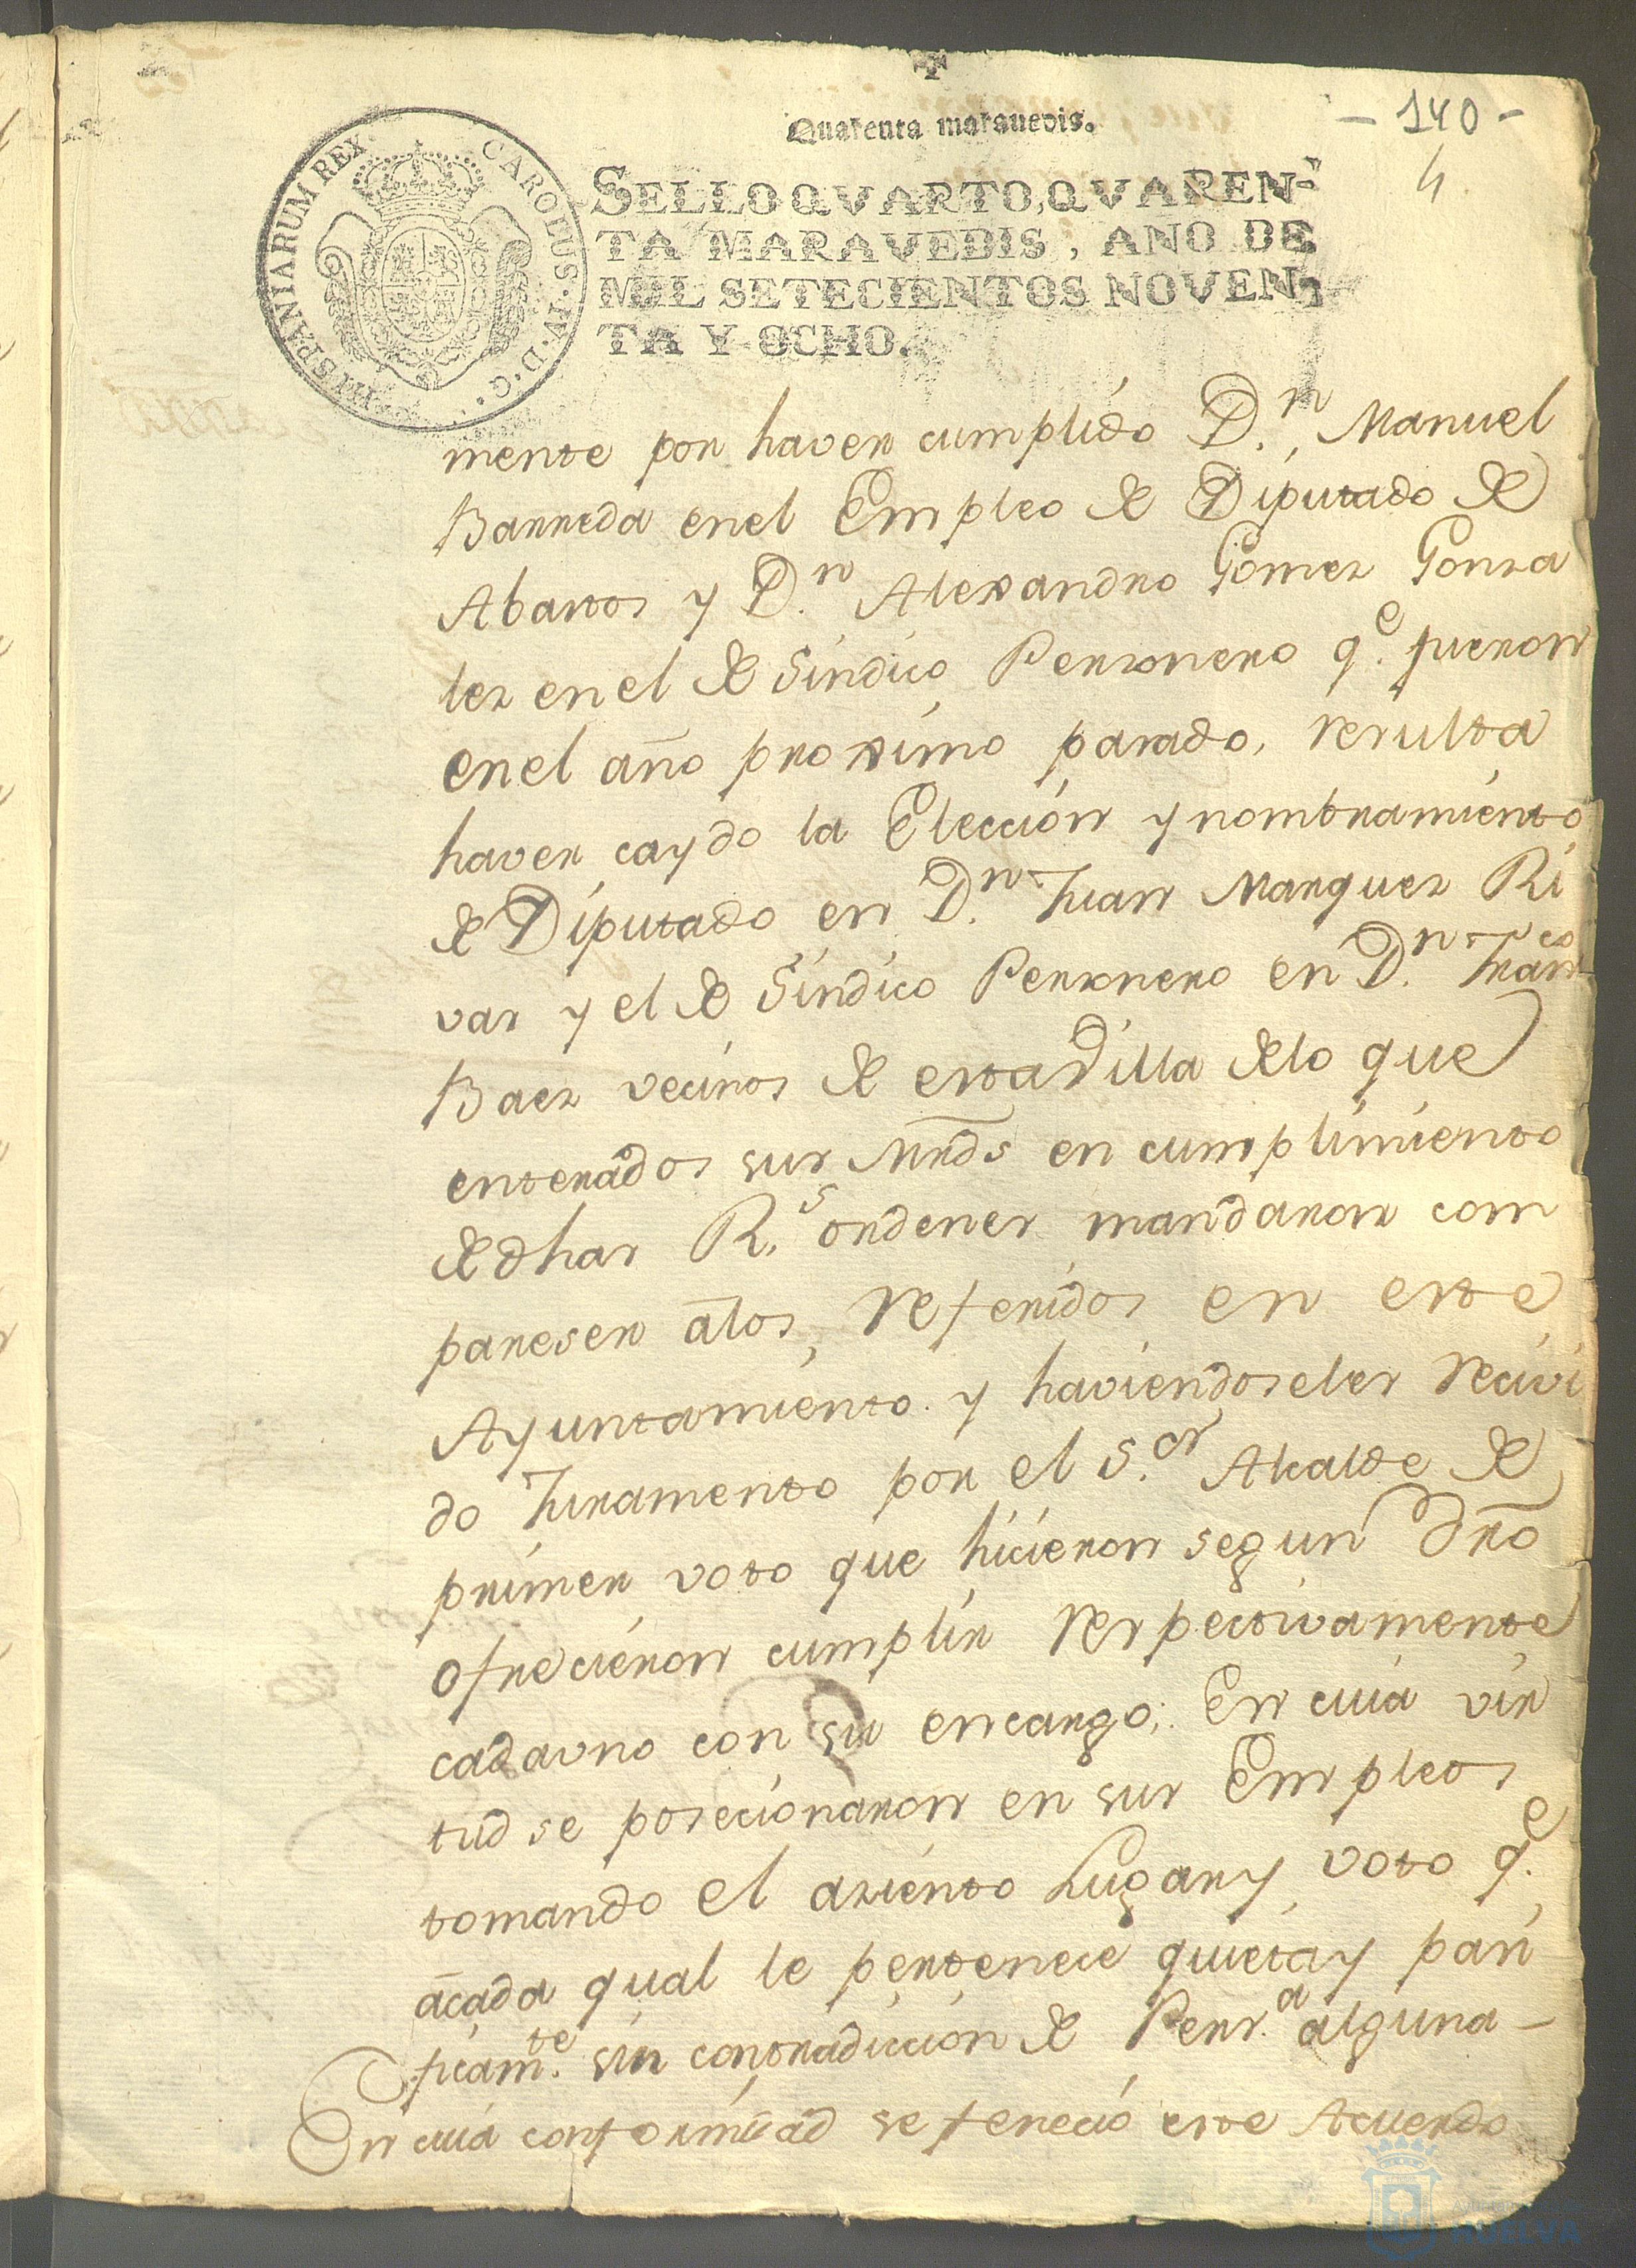 Quarenta maravedis.
- 140 -
4
HISPANIARUM REX CAROLUS·IV·D·G·
SELLO QVARTO, QVAREN-
TA MARAVEDIS, AÑO DE
MIL SETECIENTOS NOVEN-
TA Y OCHO.
mente por haver cumplido D.n Manuel
Barreda en el Empleo de Diputado de
Abastos y D.n Alexandro Gomez Gonza
lez en el de Sindico Personero q.e fueron
en el año proximo pasado, resulta
haver caydo la Elección y nombramiento
de Diputado en D.n Juan Marquez Ri
vas y el de Sindico Personero en D.n Fran.co
Baez vecinos de esta Villa de lo que
enterados sus Mrds en cumplimiento
de dhas R.s ordenes mandaron com
paresen a los referidos en este
Ayuntamiento. y haviendoseles recivi
do Juramento por el S.or Alcalde de
primer voto que hicieron segun dro
ofrecieron cumplir respectivamente
cada uno con su encargo; En cuia vir
tud se posecionaron en sus Empleos
tomando el asiento Lugar y voto q.e
a cada qual le pertenece quieta y pasi
ficam.te sin contradiccion de Pers.a alguna -
En cuia conformidad se feneció este Acuerdo
HUELVA